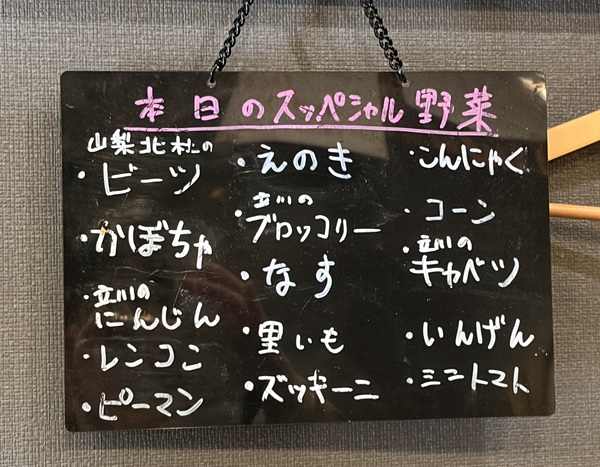 本日のスッペシャル野菜
山梨北杜の
・ビーツ
・かぼちゃ
・立川の
にんじん
・レンコン
・ピーマン
・えのき
・立川の
ブロッコリー
・なす
・里いも
・ズッキーニ
・こんにゃく
・コーン
・立川の
キャベツ
・いんげん
・ミニトマト